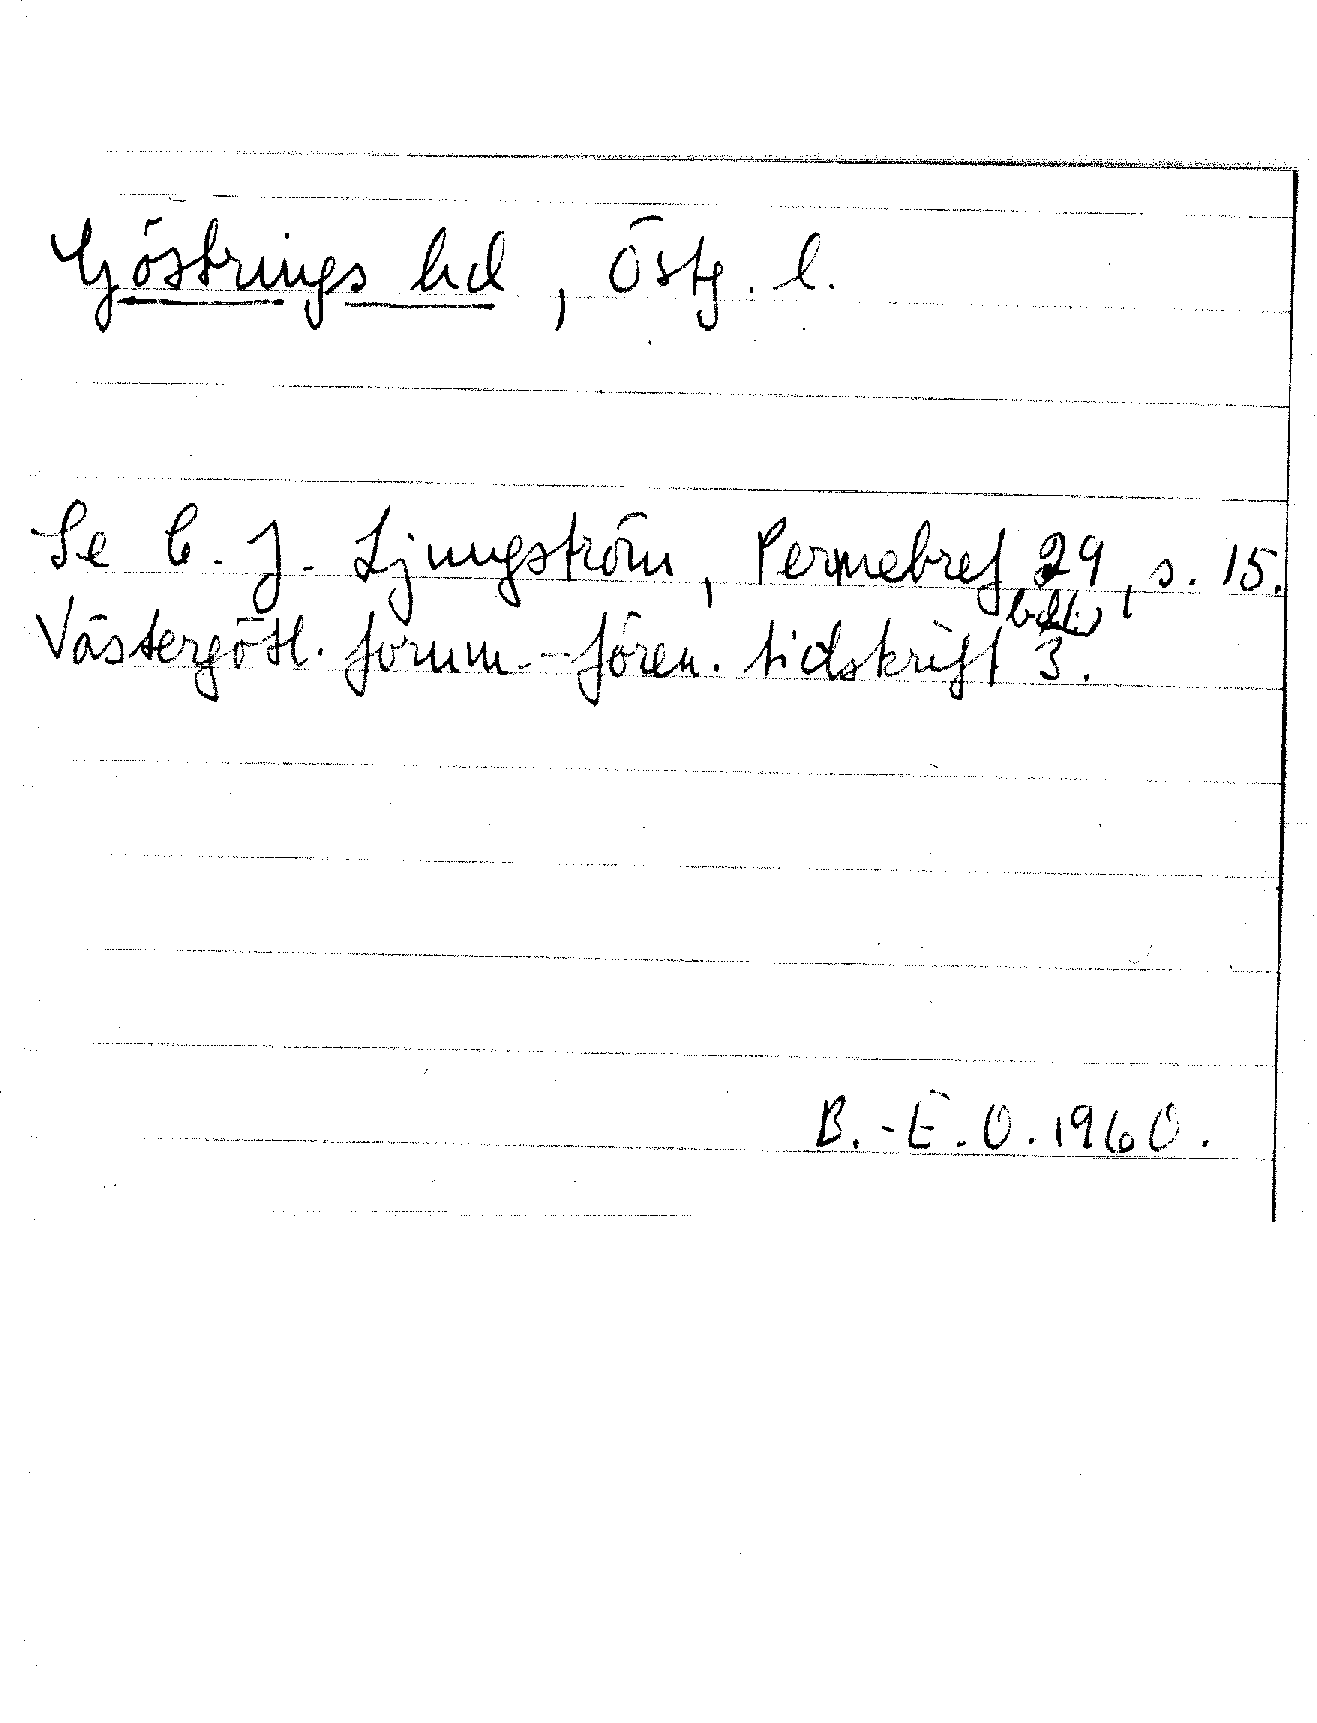 Göstrings hd, Östg. l.
Se C. J. Ljungström, Pernebref 29, s. 15.
Västergötl. fornm.-fören. tidskrift 3.
B.-E.O. 1960.